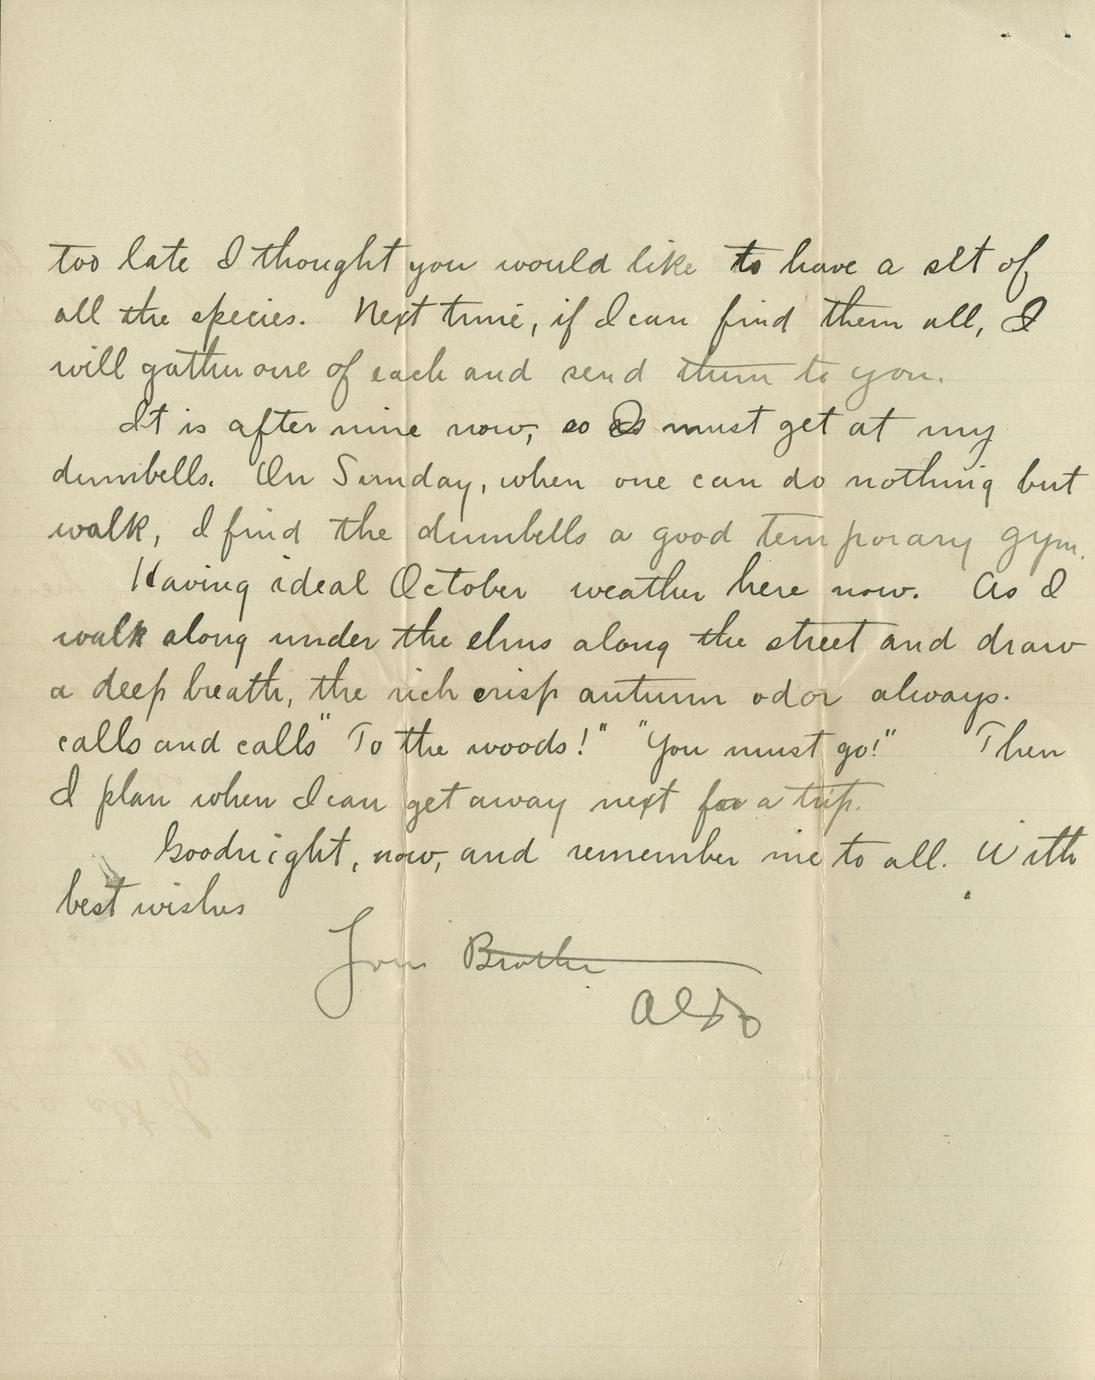 too late I thought you would like to have a set of
all the species. Next time, if I can find them all, I
will gather one of each and send them to you.
It is after nine now, so I must get at my
dumbells. On Sunday, when one can do nothing but
walk, I find the dumbells a good temporary gym.
Having ideal October weather here now. As I
walk along under the elms along the street and draw
a deep breath, the rich crisp autumn odor always.
calls and calls "To the woods!" "You must go!" Then
I plan when I can get away next for a trip.
Goodnight, now, and remember me to all. With
best wishes
Your Brother
Aldo